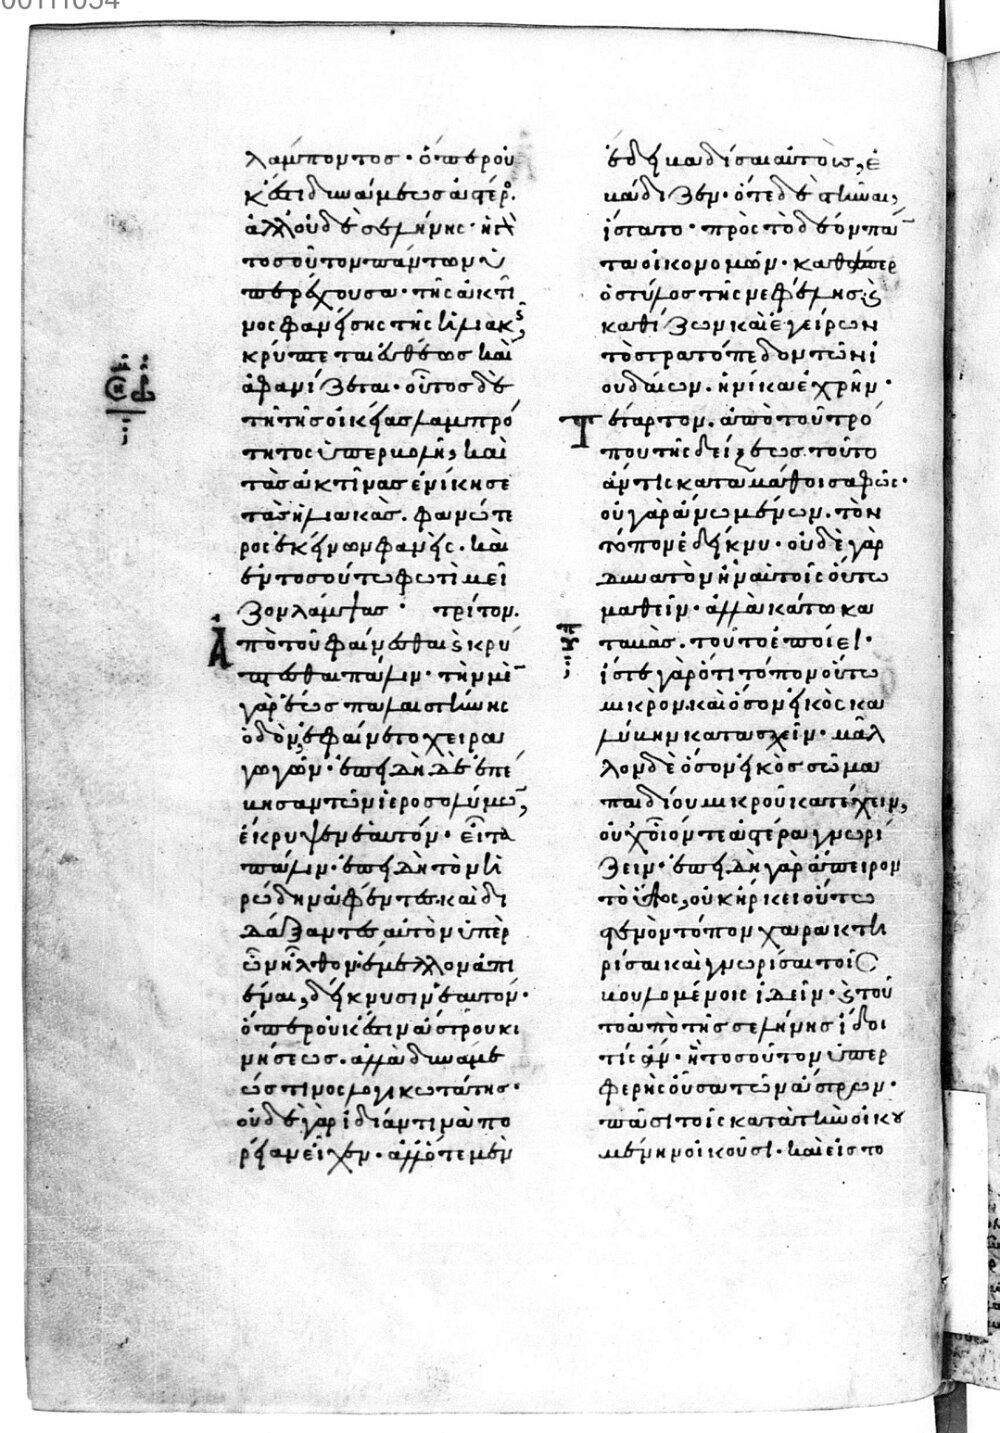 λάμποντος · ὅπερ οὐ
κ ἔστι δυνάμεως ἀστέρος.
ἀλλ' οὐδὲ σελήνης · ἡ γὰρ
τοσοῦτον πάντων ὑ
περέχουσα · τῆς ἀκτῖ
νος φανείσης τῆς ἡλιακῆς,
κρύπτεται εὐθέως καὶ
ἀφανίζεται · οὗτος δὲ
τῇ τῆς οἰκείας λαμπρό
τητος ὑπερβολῇ, καὶ
τὰς ἀκτῖνας ἐνίκησε
τὰς ἡλιακὰς. φανώτε
ρος ἐκείνων φανεὶς. καὶ
ἐν τοσούτω φωτὶ μεῖ
ζον λάμψας · τρίτον.
Ἀπὸ τοῦ φαίνεσθαι καὶ κρύ
πτεσθαι πάλιν · τὴν μὲν
γὰρ ἕως παλαιστίνης
ὁδὸν, ἐφαίνετο χειρα
γωγῶν · ἐπειδὴ δὲ ἐπέ
βησαν τῶν ἱεροσολύμων,
ἔκρυψεν ἑαυτόν · εἶτα
πάλιν · ἐπειδὴ τὸν ἡ
ρώδην ἀφέντες καὶ δι
δάξαντες αὐτὸν ὑπὲρ
ὧν ἦλθον · ἔμελλον ἀπι
έναι, δείκνυσιν ἑαυτόν ·
ὅπερ οὐκ ἔστιν ἄστρου κι
νήσεως. ἀλλὰ δυνάμε
ώς τινος λογικωτάτης ·
οὐδὲ γὰρ ἰδίαν τινὰ πο
ρείαν εἶχεν · ἀλλ' ὅτε μὲν
ἔδει βαδίσαι αὐτοὺς, ἐ
βάδιζεν · ὅτε δὲ στῆναι,
ἵστατο · πρὸς τὸ δέον πάν
τα οἰκονομῶν · καθάπερ
ὁ στύλος τῆς νεφέλης καὶ
καθίζων καὶ ἐγείρων
τὸ στρατόπεδον τῶν ἰ
ουδαίων. ἡνίκα ἐχρῆν ·
Τέταρτον. ἀπὸ τοῦ τρό
που τῆς δείξεως τοῦτο
ἄν τις καταμάθοι σαφῶς ·
οὐ γὰρ ἄνω μένων. τὸν
τόπον ἐδείκνυ · οὐδὲ γὰρ
δυνατὸν ἦν αὐτοῖς οὕτω
μαθεῖν · ἀλλὰ κάτω κα
ταβὰς. τοῦτο ἐποίει ·
ἴστε γὰρ ὅτι τόπον οὕτω
μικρὸν. καὶ ὅσον εἰκὸς κα
λύβην κατασχεῖν · μᾶλ
λον δὲ ὅσον εἰκὸς σῶμα
παιδίου μικροῦ κατέχειν,
οὐχ οἷόν τε ἀστέρα γνωρί
ζειν · ἐπειδὴ γὰρ ἄπειρον
τὸ ὕψος, οὐκ ἤρκει οὕτω
στενὸν τόπον χαρακτη
ρίσαι καὶ γνωρίσαι τοῖς
βουλομένοις ἰδεῖν · καὶ τοῦ
το ἀπὸ τῆς σελήνης ἴδοι
τίς ἂν · ἣ τοσοῦτον ὑπερ
φερὴς οὖσα τῶν ἄστρων ·
πᾶσι τοῖς κατὰ τὴν οἰκου
μένην οἰκοῦσι · καὶ εἰς το